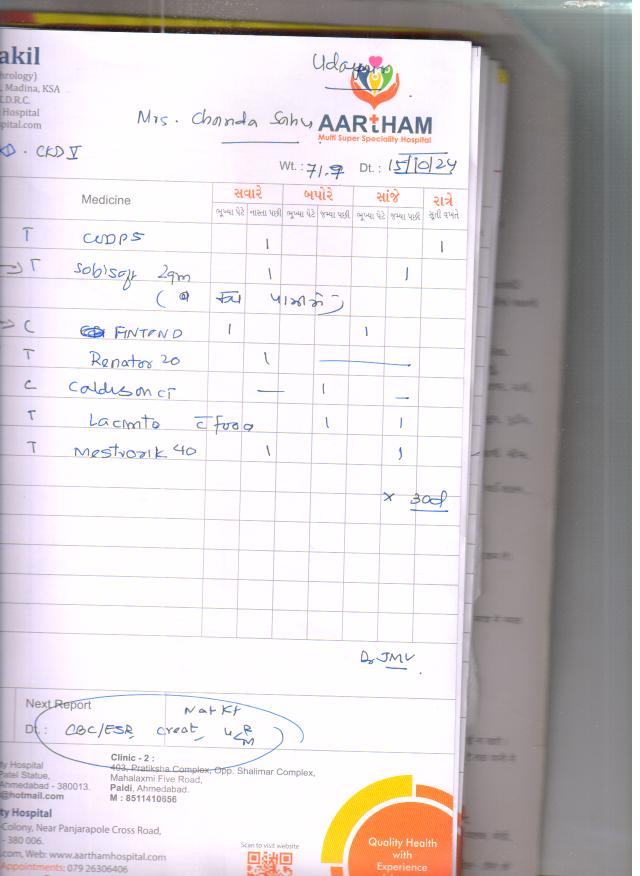 akil
hrology)
, Madina, KSA
.D.R.C.
Hospital
pital.com
Udaipur
Mrs. Chanda Sahu
AARTHAM
Multi Super Speciality Hospital
CKD V
Wt. : 71.9 Dt. : 15/10/24
Medicine સવારે બપોરે સાંજે રાત્રે
ભૂખ્યા પેટે નાસ્તા પછી ભૂખ્યા પેટે જમ્યા પછી ભૂખ્યા પેટે જમ્યા પછી સૂતી વખતે
T 1 1
T Sobisoft 2gm 1 1
C FINTEND 1 1
T Renator 20 1
C 1
T c̄ food 1 1
T 40 1 1
x 30d
Dr JMV
Next Report Na+ K+
Dt : CBC/ESR, creat, U R/M
ty Hospital
Patel Statue,
Ahmedabad - 380013.
@hotmail.com
Clinic - 2 :
403, Pratiksha Complex, Opp. Shalimar Complex,
Mahalaxmi Five Road,
Paldi, Ahmedabad.
M : 8511410656
ty Hospital
-Colony, Near Panjarapole Cross Road,
- 380 006.
.com, Web: www.aarthamhospital.com
Appointments: 079 26306406
Scan to visit website
Quality Health
with
Experience